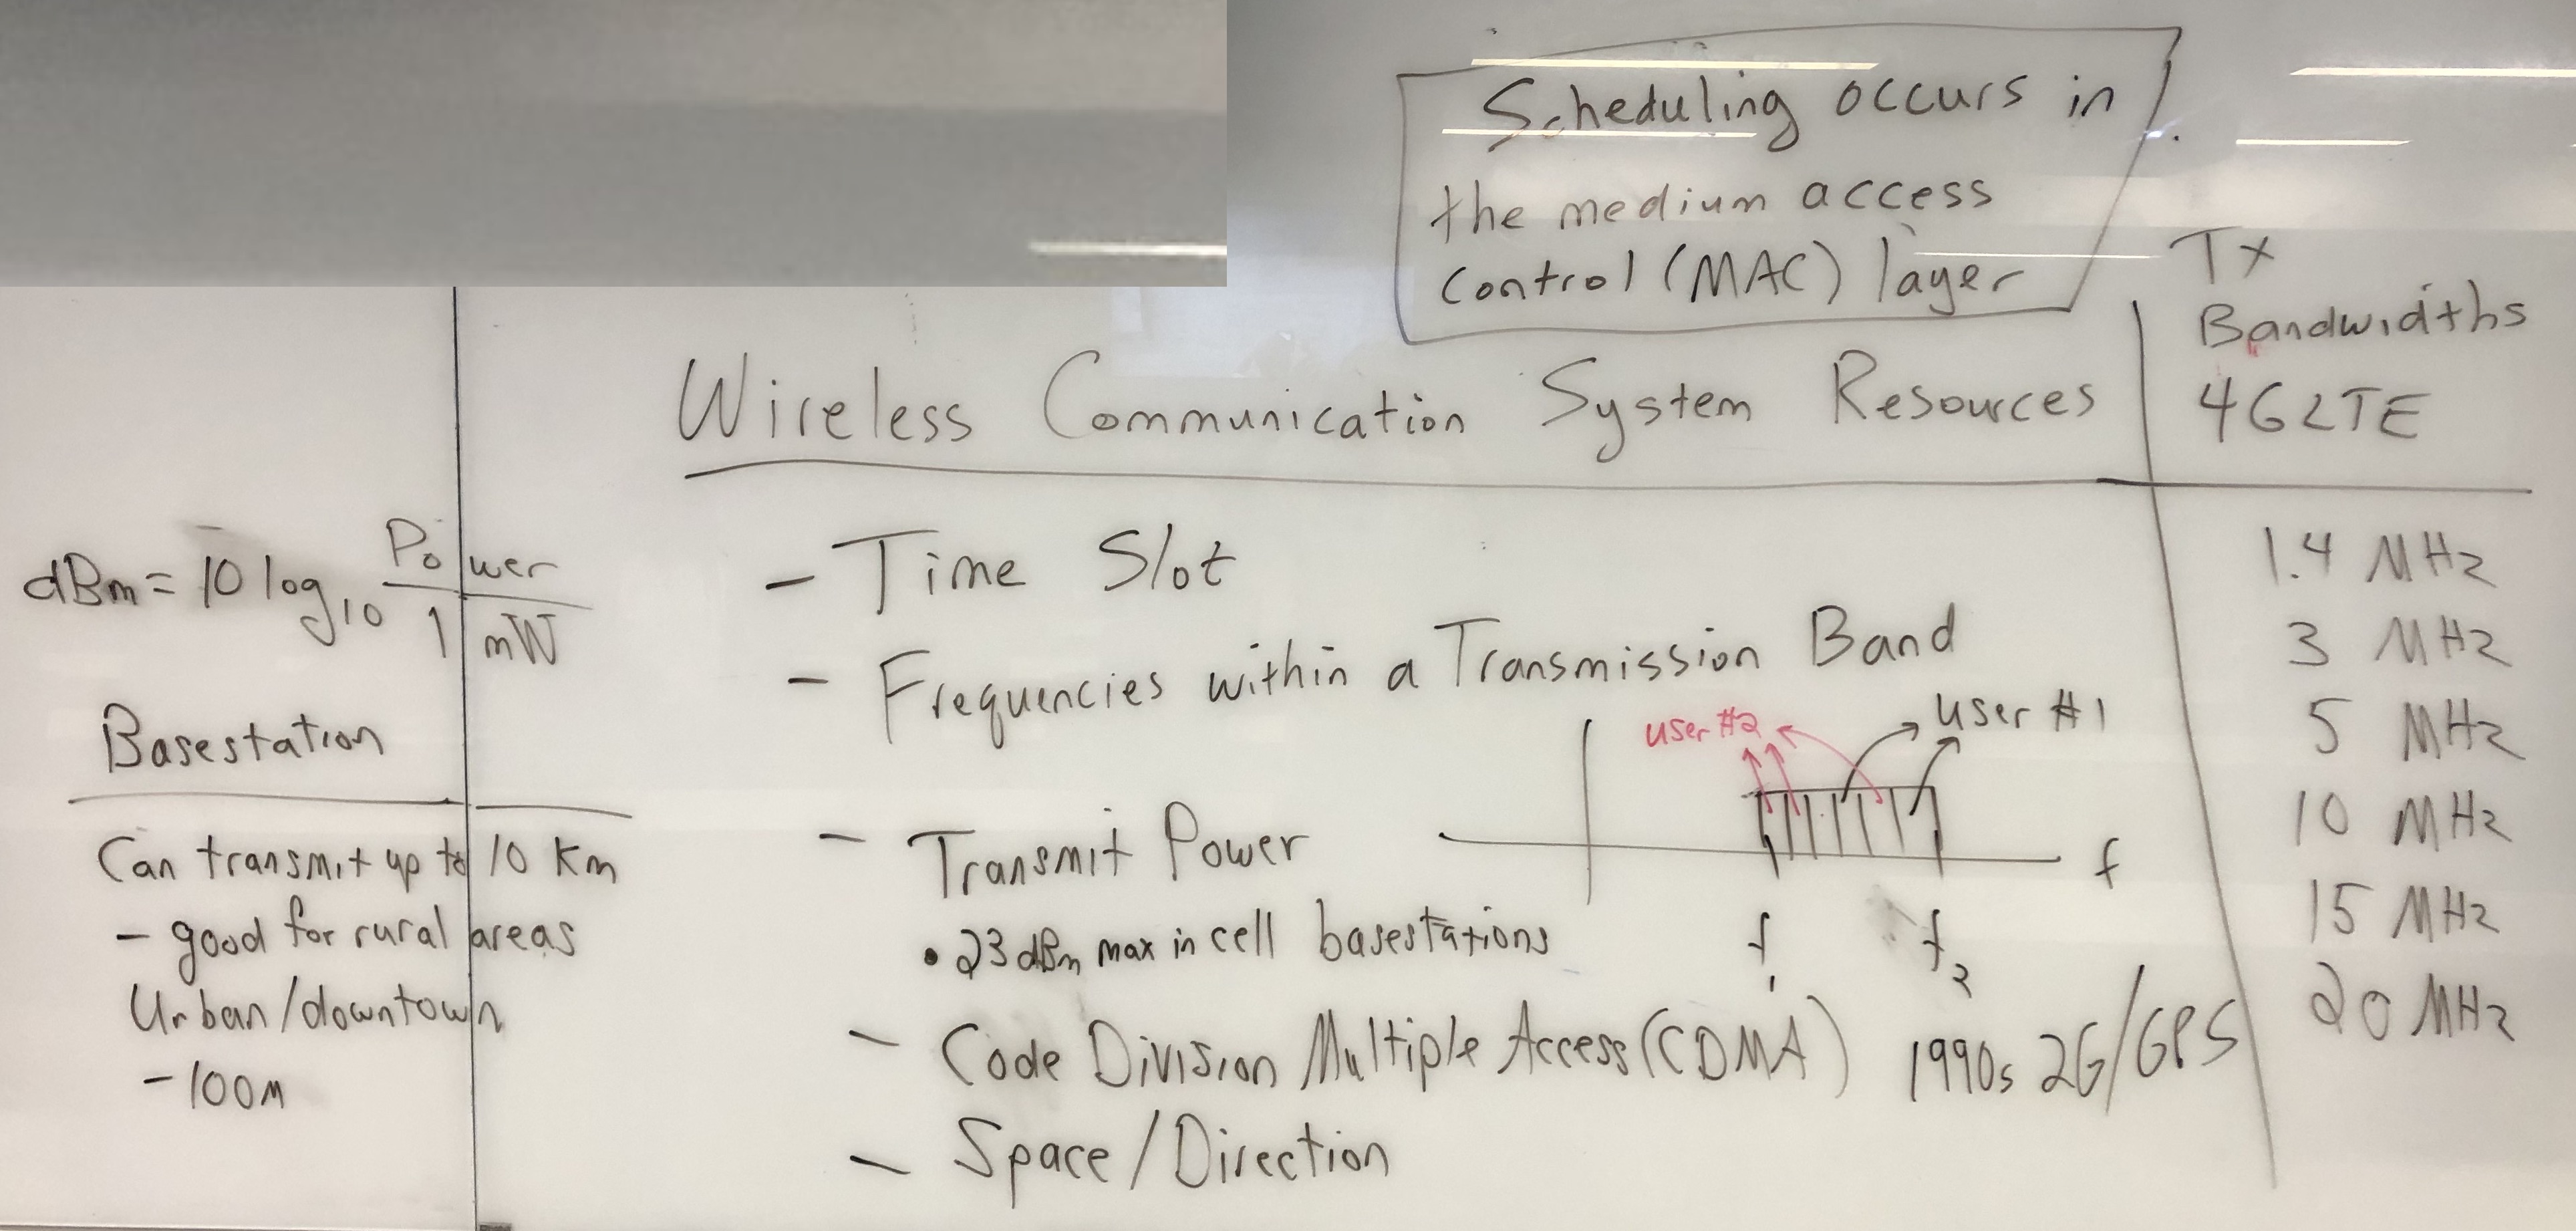 Scheduling occurs in
the medium access
control (MAC) layer
Tx
Bandwidths
4G LTE
1.4 MHz
3 MHz
5 MHz
10 MHz
15 MHz
20 MHz
Wireless Communication System Resources
- Time Slot
- Frequencies within a Transmission Band
user #2
user #1
f
f1
f2
- Transmit Power
• 23 dBm max in cell basestations
- Code Division Multiple Access (CDMA) 1990s 2G/GPS
- Space/Direction
dBm = 10 log10 Power
1 mW
Basestation
Can transmit up to 10 Km
- good for rural areas
Urban/downtown
- 100m